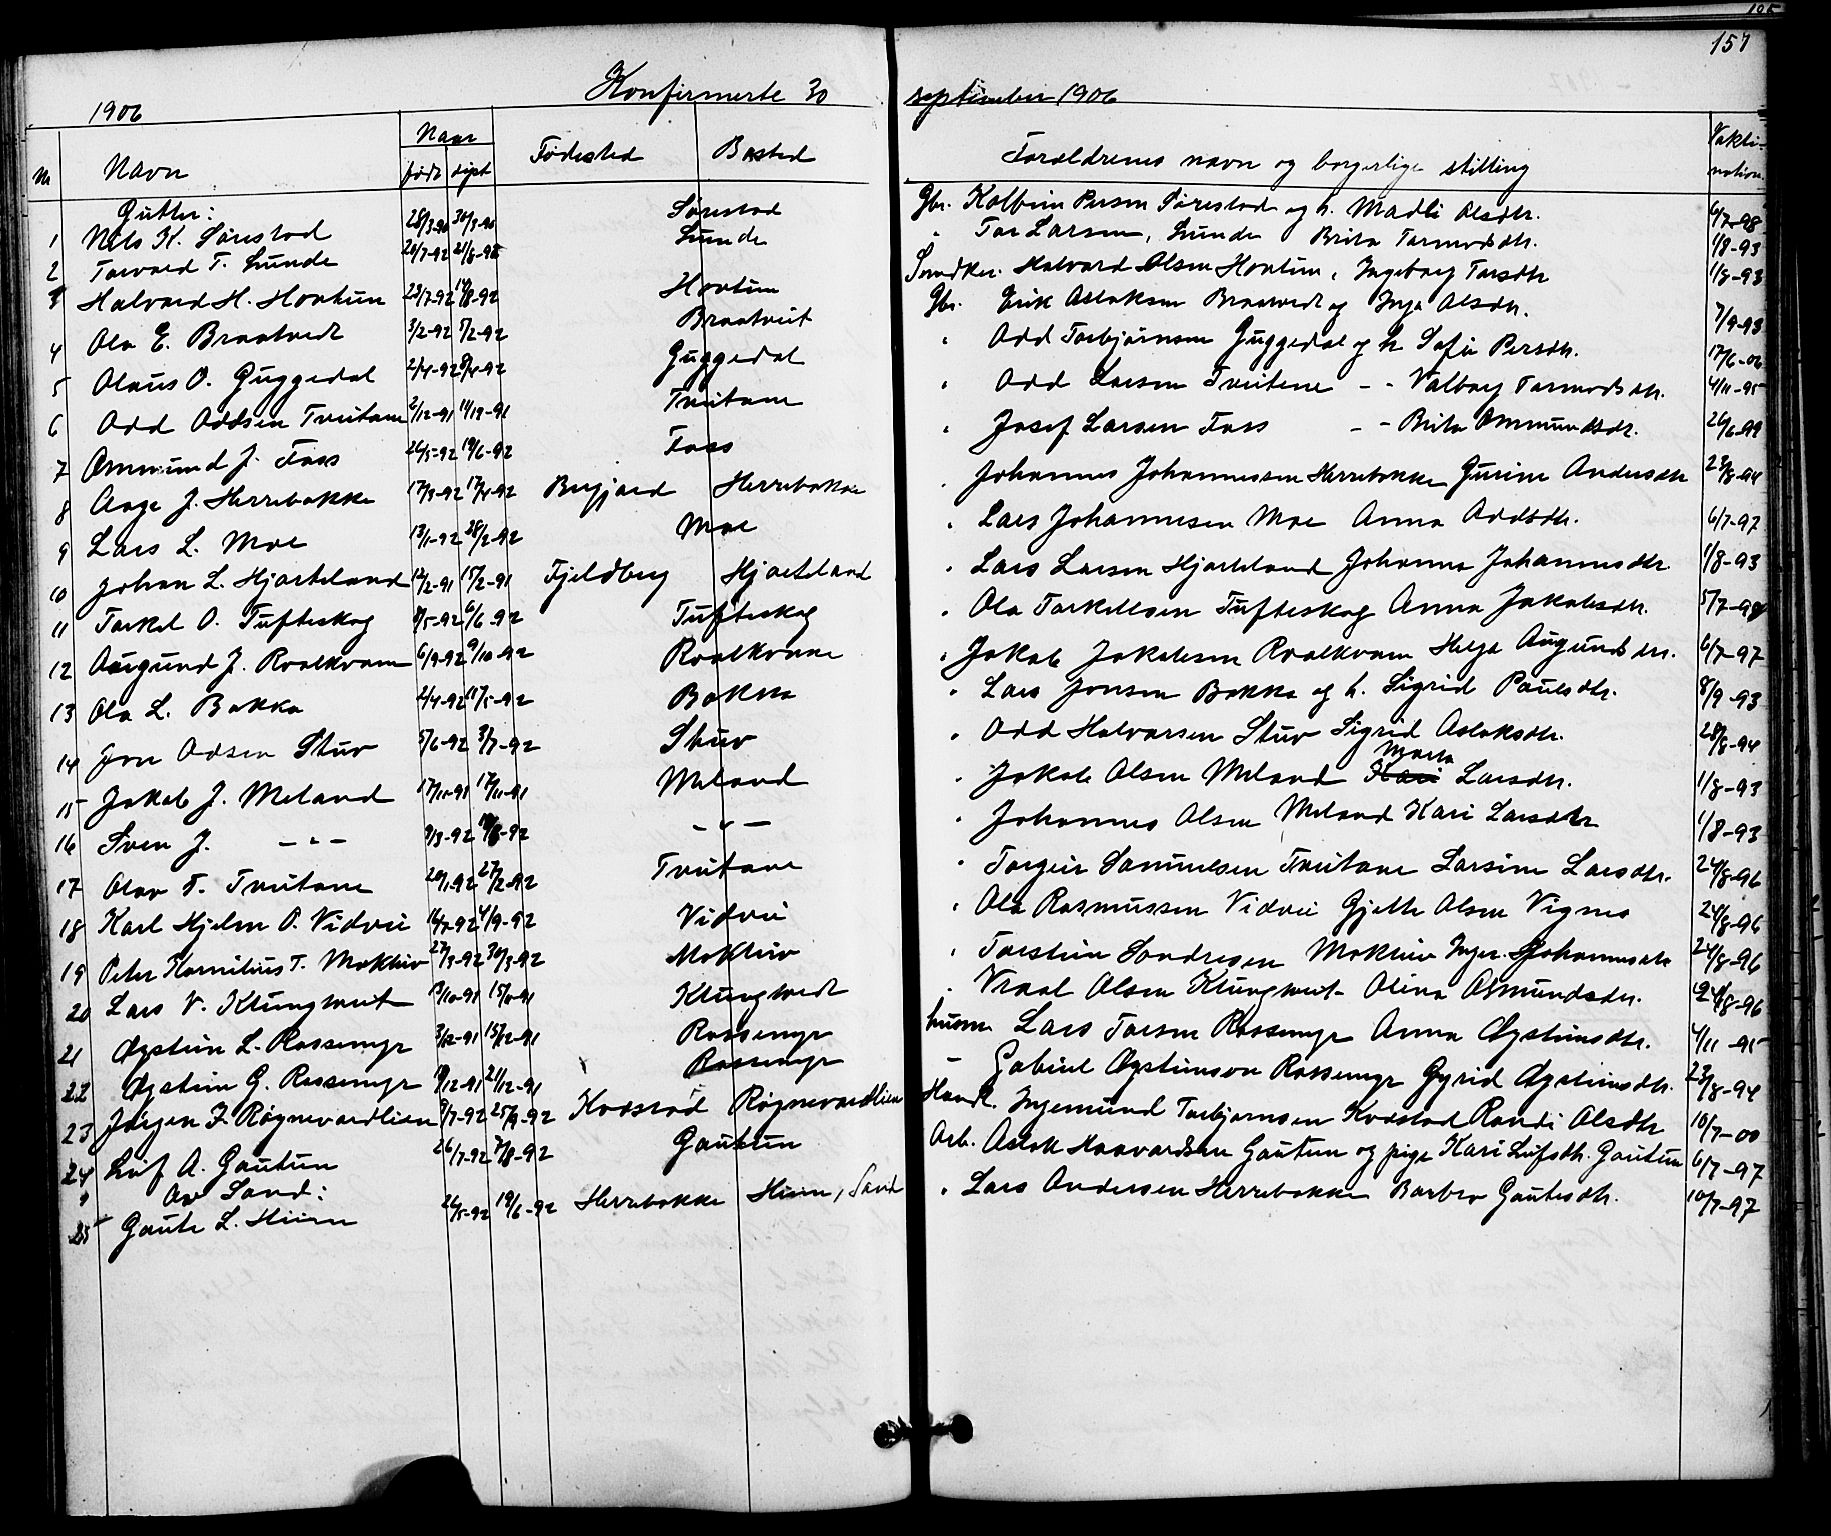 157
1906 Konfirmerte 30 september 1906
Nr Navn Naar født døpt Fødested Bosted Forældrenes navn og borgerlige stilling Vakti-nation.
Gutter:
1 Nils K. Sørestad 28/3-90 30/3-90 Sørestad Gbr. Kolbein Persen Sørestad og h. Madli Olsdtr. 6/7-98
2 Torvard T. Lunde 20/7-92 21/8-92 Lunde " Tor Larsen, Lunde Brita Tormodsdtr. 1/8-93
3 Halvard H. Hovtun 23/7-92 14/8-92 Hovtun Halvard Olsen Hovtun, Ingeborg Torsdtr 1/8-93
4 Ola E. Braatvedt 3/2-92 5/2-92 Braatveit Gbr. Erik Aslaksen Braatvedt og Inga Olsdtr. 7/9-93
5 Olaus O. Guggedal 2/4-92 8/4-92 Guggedal " Odd Torbjørnsen Guggedal og h Sofie Persdtr. 17/6-06
6 Odd Oddsen Tveitane 2/12-91 14/12-91 Tveitane " Odd Larsen Tveitene - - Valborg Tormodsdtr. 4/11-95
7 Ommund J. Foss 26/5-92 19/6-92 Foss " Josef Larsen Foss - - Brita Ommundsdtr. 26/6-99
8 Aage J. Herrebakke 17/3-92 17/4-92 Birgjord Herrebakke " Johannes Johannessen Herrebakke Gurine Andersdtr 23/8-94
9 Lars L. Moe 13/1-92 28/2-92 Moe " Lars Johannesen Moe Anna Oddsdtr. 6/7-97
10 Johan L. Hjorteland 12/2-91 15/2-91 Fjeldberg Hjorteland " Lars Larsen Hjorteland Johanna Johannesdtr 1/8-93
11 Torkel O. Tufteskog 8/5-92 6/6-92 Tufteskog " Ola Torkellsen Tufteskog Anna Jakobsdtr. 5/7-98
12 Augund J. Roalkvam 6/9-92 9/10-92 Roalkvam " Jakob Jakobsen Roalkvam Helga Augundsdtr. 6/7-97
13 Ola L. Bakka 2/4-92 11/5-92 Bakka " Lars Jonsen Bakka og h. Sigrid Paulsdtr. 8/9-93
14 Jon Odsen Stuv 5/6-92 3/7-92 Stuv " Odd Halvorsen Stuv Sigrid Aslaksdtr. 28/8-94
15 Jakob J. Meland 17/10-91 17/11-91 Meland " Jakob Olsen Meland Kari Marta Larsdtr. 1/8-93
16 Sven J. - " - 9/3-92 - " - " Johannes Olsen Meland Kari Larsdtr 1/8-93
17 Olav T. Tveitane 20/1-92 27/2-92 Tveitane " Torgeir Samuelsen Tveitane Larsine Larsdtr. 24/8-96
18 Karl Hjelm O. Vidvei 4/9-92 Vidvei " Ola Rasmussen Vidvei Gjette Olsen Vignes 24/8-96
19 Peter Kornelius T. Mokleiv 27/3-92 30/3-92 Mokleiv " Torstein Sondresen Mokleiv Inger Johannesdtr 24/8-96
20 Lars V. Klungtveit 13/10-91 15/11-91 Klungtvedt " Vraal Olsen Klungtveit Olina Osmundsdtr. 24/8-96
21 Øystein L. Rossemyr 3/12-91 15/12-91 Rossemyr Husm. Lars Torsen Rossemyr Anna Øysteinsdtr. 4/11-95
22 Øystein G. Rossemyr 19/12-91 21/12-91 Rossemyr - Gabriel Øysteinson Rossemyr Gyrid Øysteinsdtr. 23/8-94
23 Jørgen I. Røgnevardlien 9/7-92 25/9-92 Kvdstad Røgnevardlien Handl. Ingemund Torbjørnsen Kvdstad Randi Olsdtr 10/7-00
24 Leif A. Gautun 26/7-92 7/8-92 Gautun Arb. Aslak Haavardsen Gautun og pige Kari Leifsdtr. Gautun 6/7-97
Av Sand:
25 Gaute L. Hiim 26/5-92 19/6-92 Herrebakke Hiim, Sand " Lars Andersen Herrebakke Barbro Gautesdtr. 10/7-97